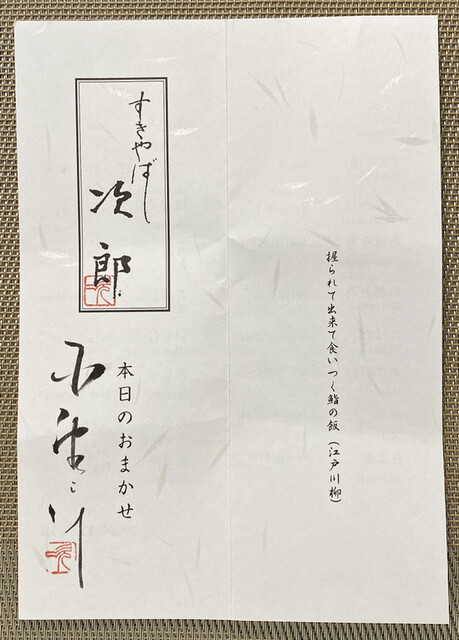 握られて出来て食いつく鮨の飯(江戸川柳)
すきやばし
次郎
本日のおまかせ